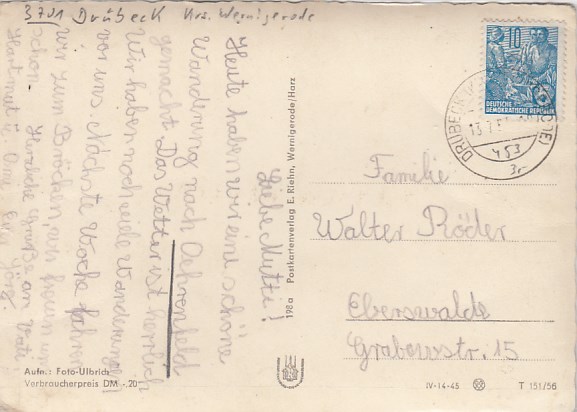 3701 Drübeck Krs. Wernigerode
Liebe Mutti!
Heute haben wir eine schöne
Wanderung nach Oehrenfeld
gemacht. Das Wetter ist herrlich
Wir haben noch viele Wanderungen
vor uns. Nächste Woche fahren
wir zum Brocken, wir freuen uns
schon. Herzliche Grüße an Vati
Hartmut u. Jörg.
198a Postkartenverlag E. Riehn, Wernigerode/Harz
10
DEUTSCHE
DEMOKRATISCHE REPUBLIK
DRÜBECK
453
Familie
Walter Röder
Eberswalde
Grabowstr. 15
Aufn.: Foto-Ulbrich
Verbraucherpreis DM -.20
IV-14-45
T 151/56